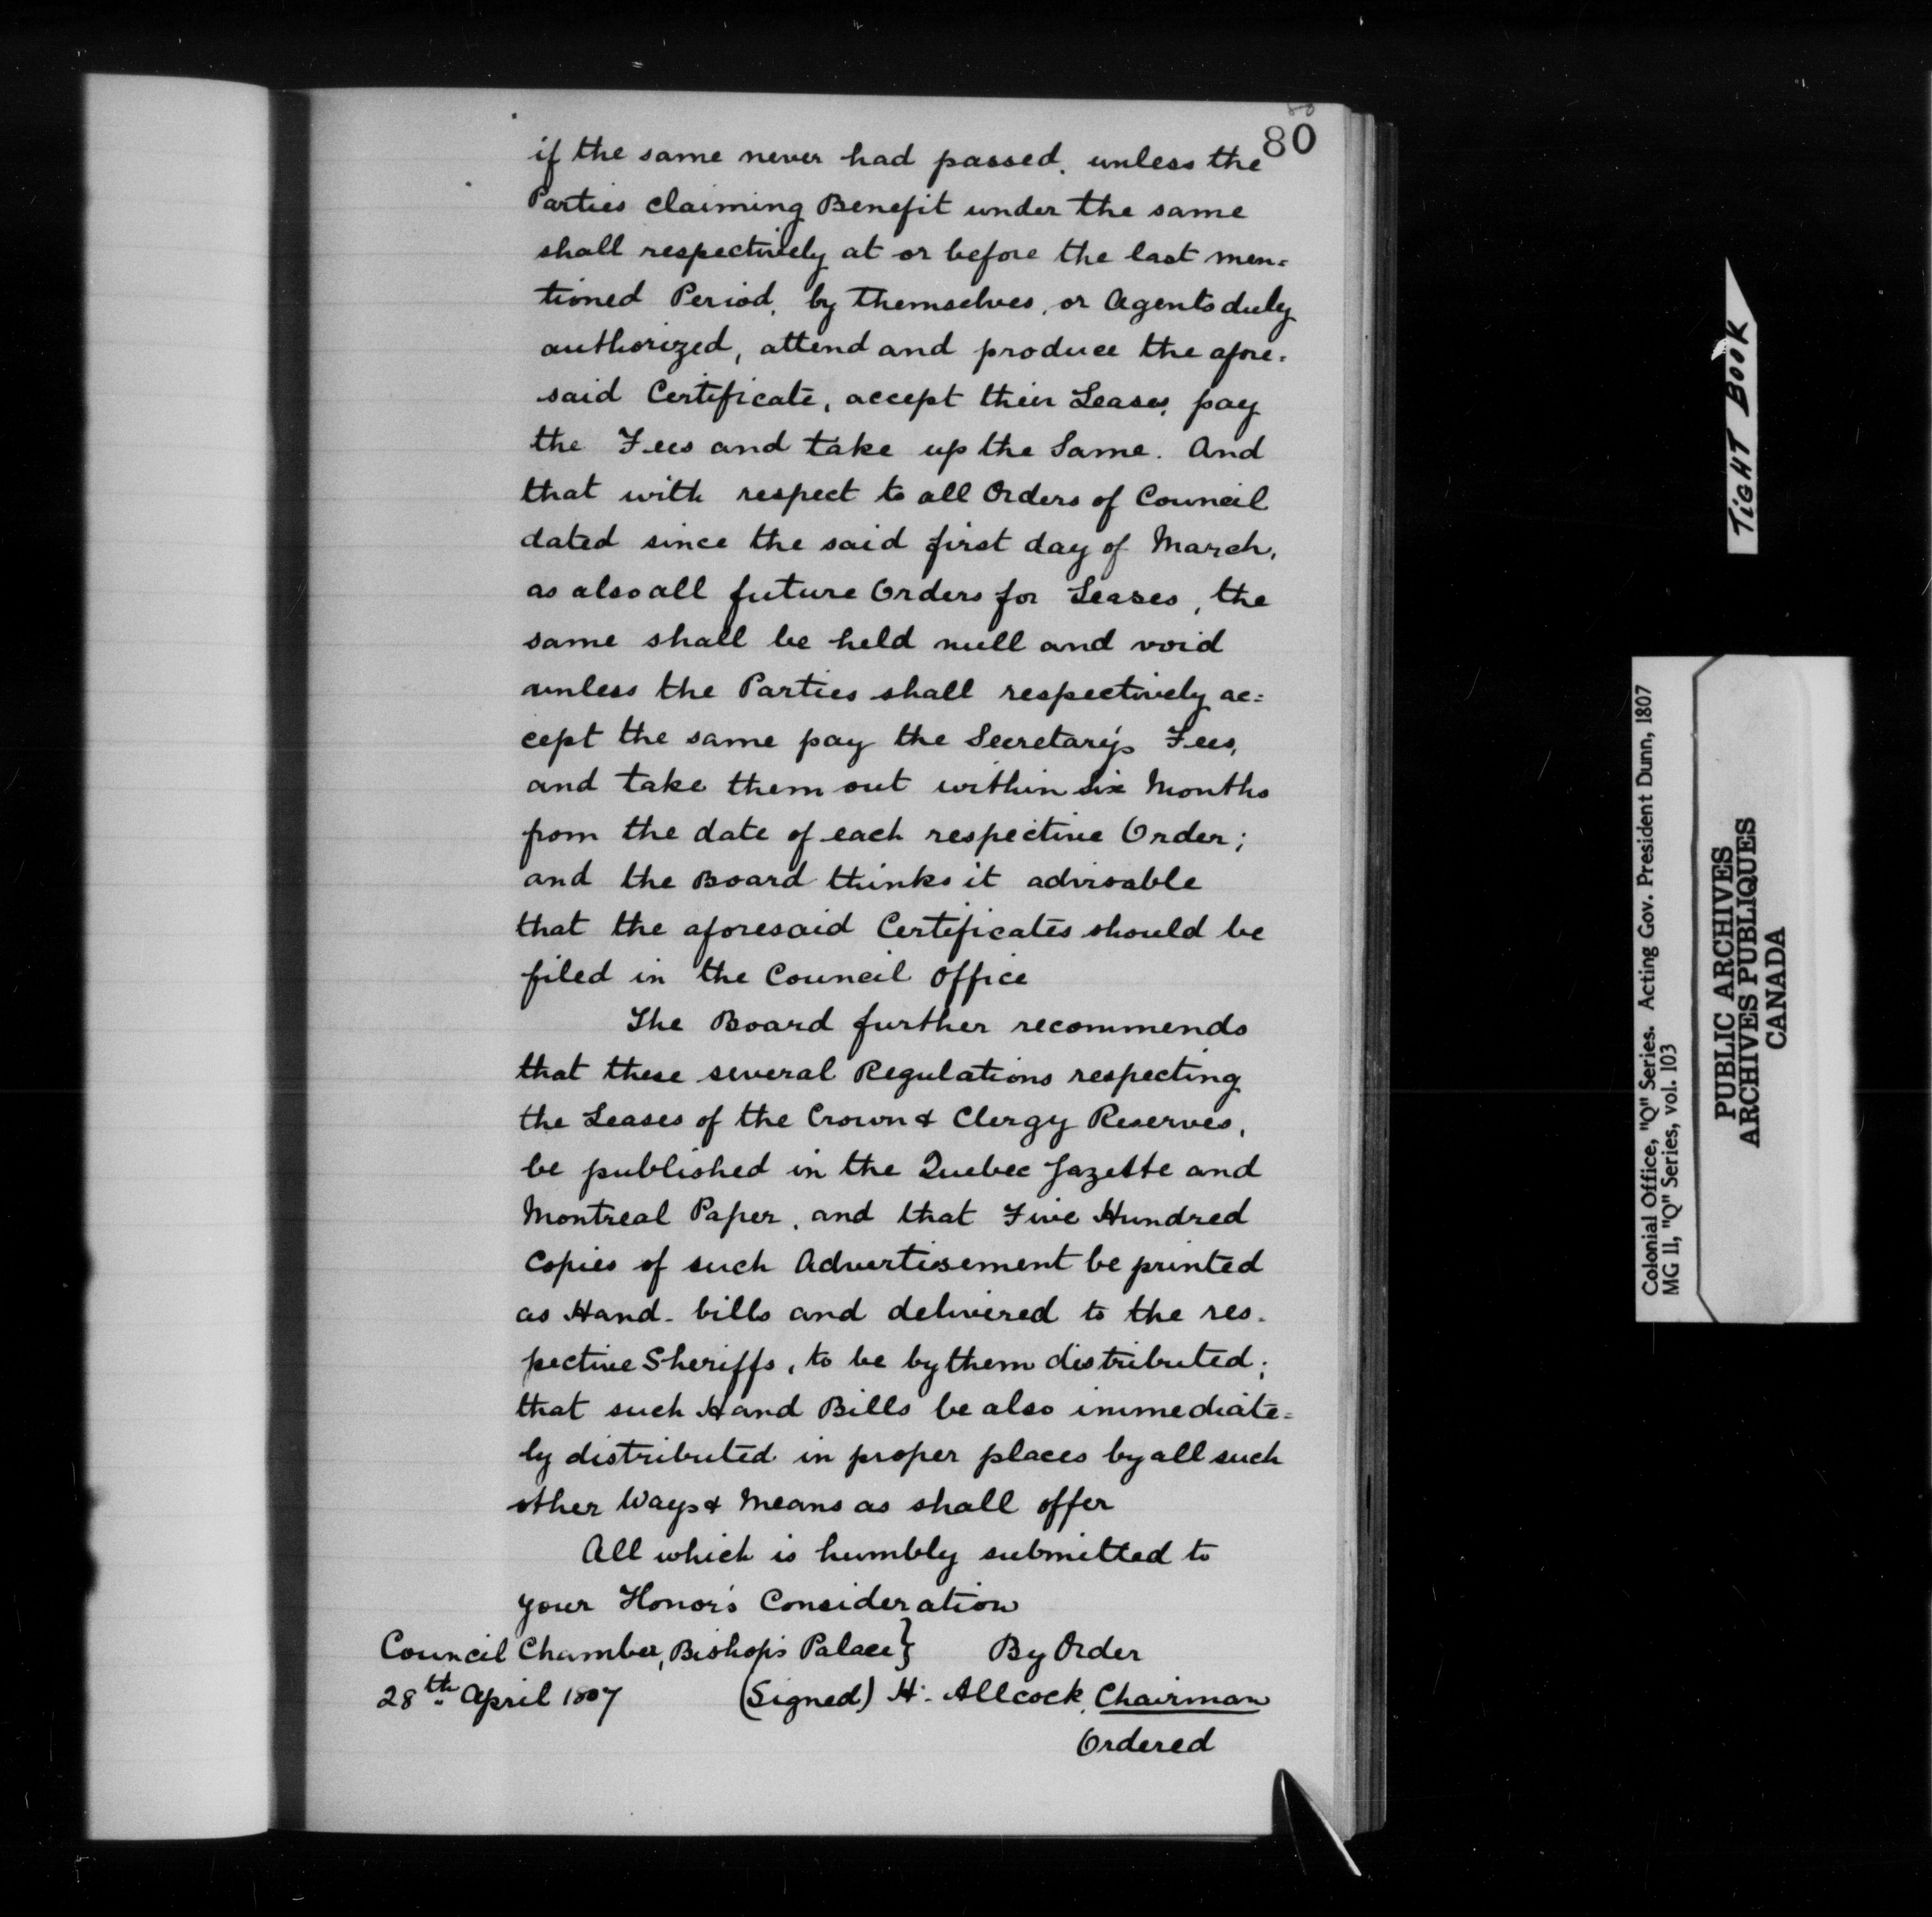 80
80
if the same never had passed, unless the
Parties claiming Benefit under the same
shall respectively at or before the last men=
tioned Period, by themselves, or Agents duly
authorized, attend and produce the afore=
said Certificate, accept their Leases, pay
the Fees and take up the Same. And
that with respect to all Orders of Council
dated since the said first day of March,
as also all future Orders for Leases, the
same shall be held null and void
unless the Parties shall respectively ac=
cept the same pay the Secretary's Fees,
and take them out within six Months
from the date of each respective Order;
and the Board thinks it advisable
that the aforesaid Certificates should be
filed in the Council Office
The Board further recommends
that these several Regulations respecting
the Leases of the Crown & Clergy Reserves,
be published in the Quebec Gazette and
Montreal Paper, and that Five Hundred
Copies of such Advertisement be printed
as Hand-bills and delivered to the res-
pective Sheriffs, to be by them distributed;
that such Hand Bills be also immediate=
ly distributed in proper places by all such
other Ways & Means as shall offer
All which is humbly submitted to
your Honor's Consideration
Council Chamber, Bishop's Palace} By Order
28th. April 1807 (Signed) H. Allcock, Chairman
Ordered
TIGHT BOOK
Colonial Office, "Q" Series. Acting Gov. President Dunn, 1807
MG 11, "Q" Series, vol. 103
PUBLIC ARCHIVES
ARCHIVES PUBLIQUES
CANADA